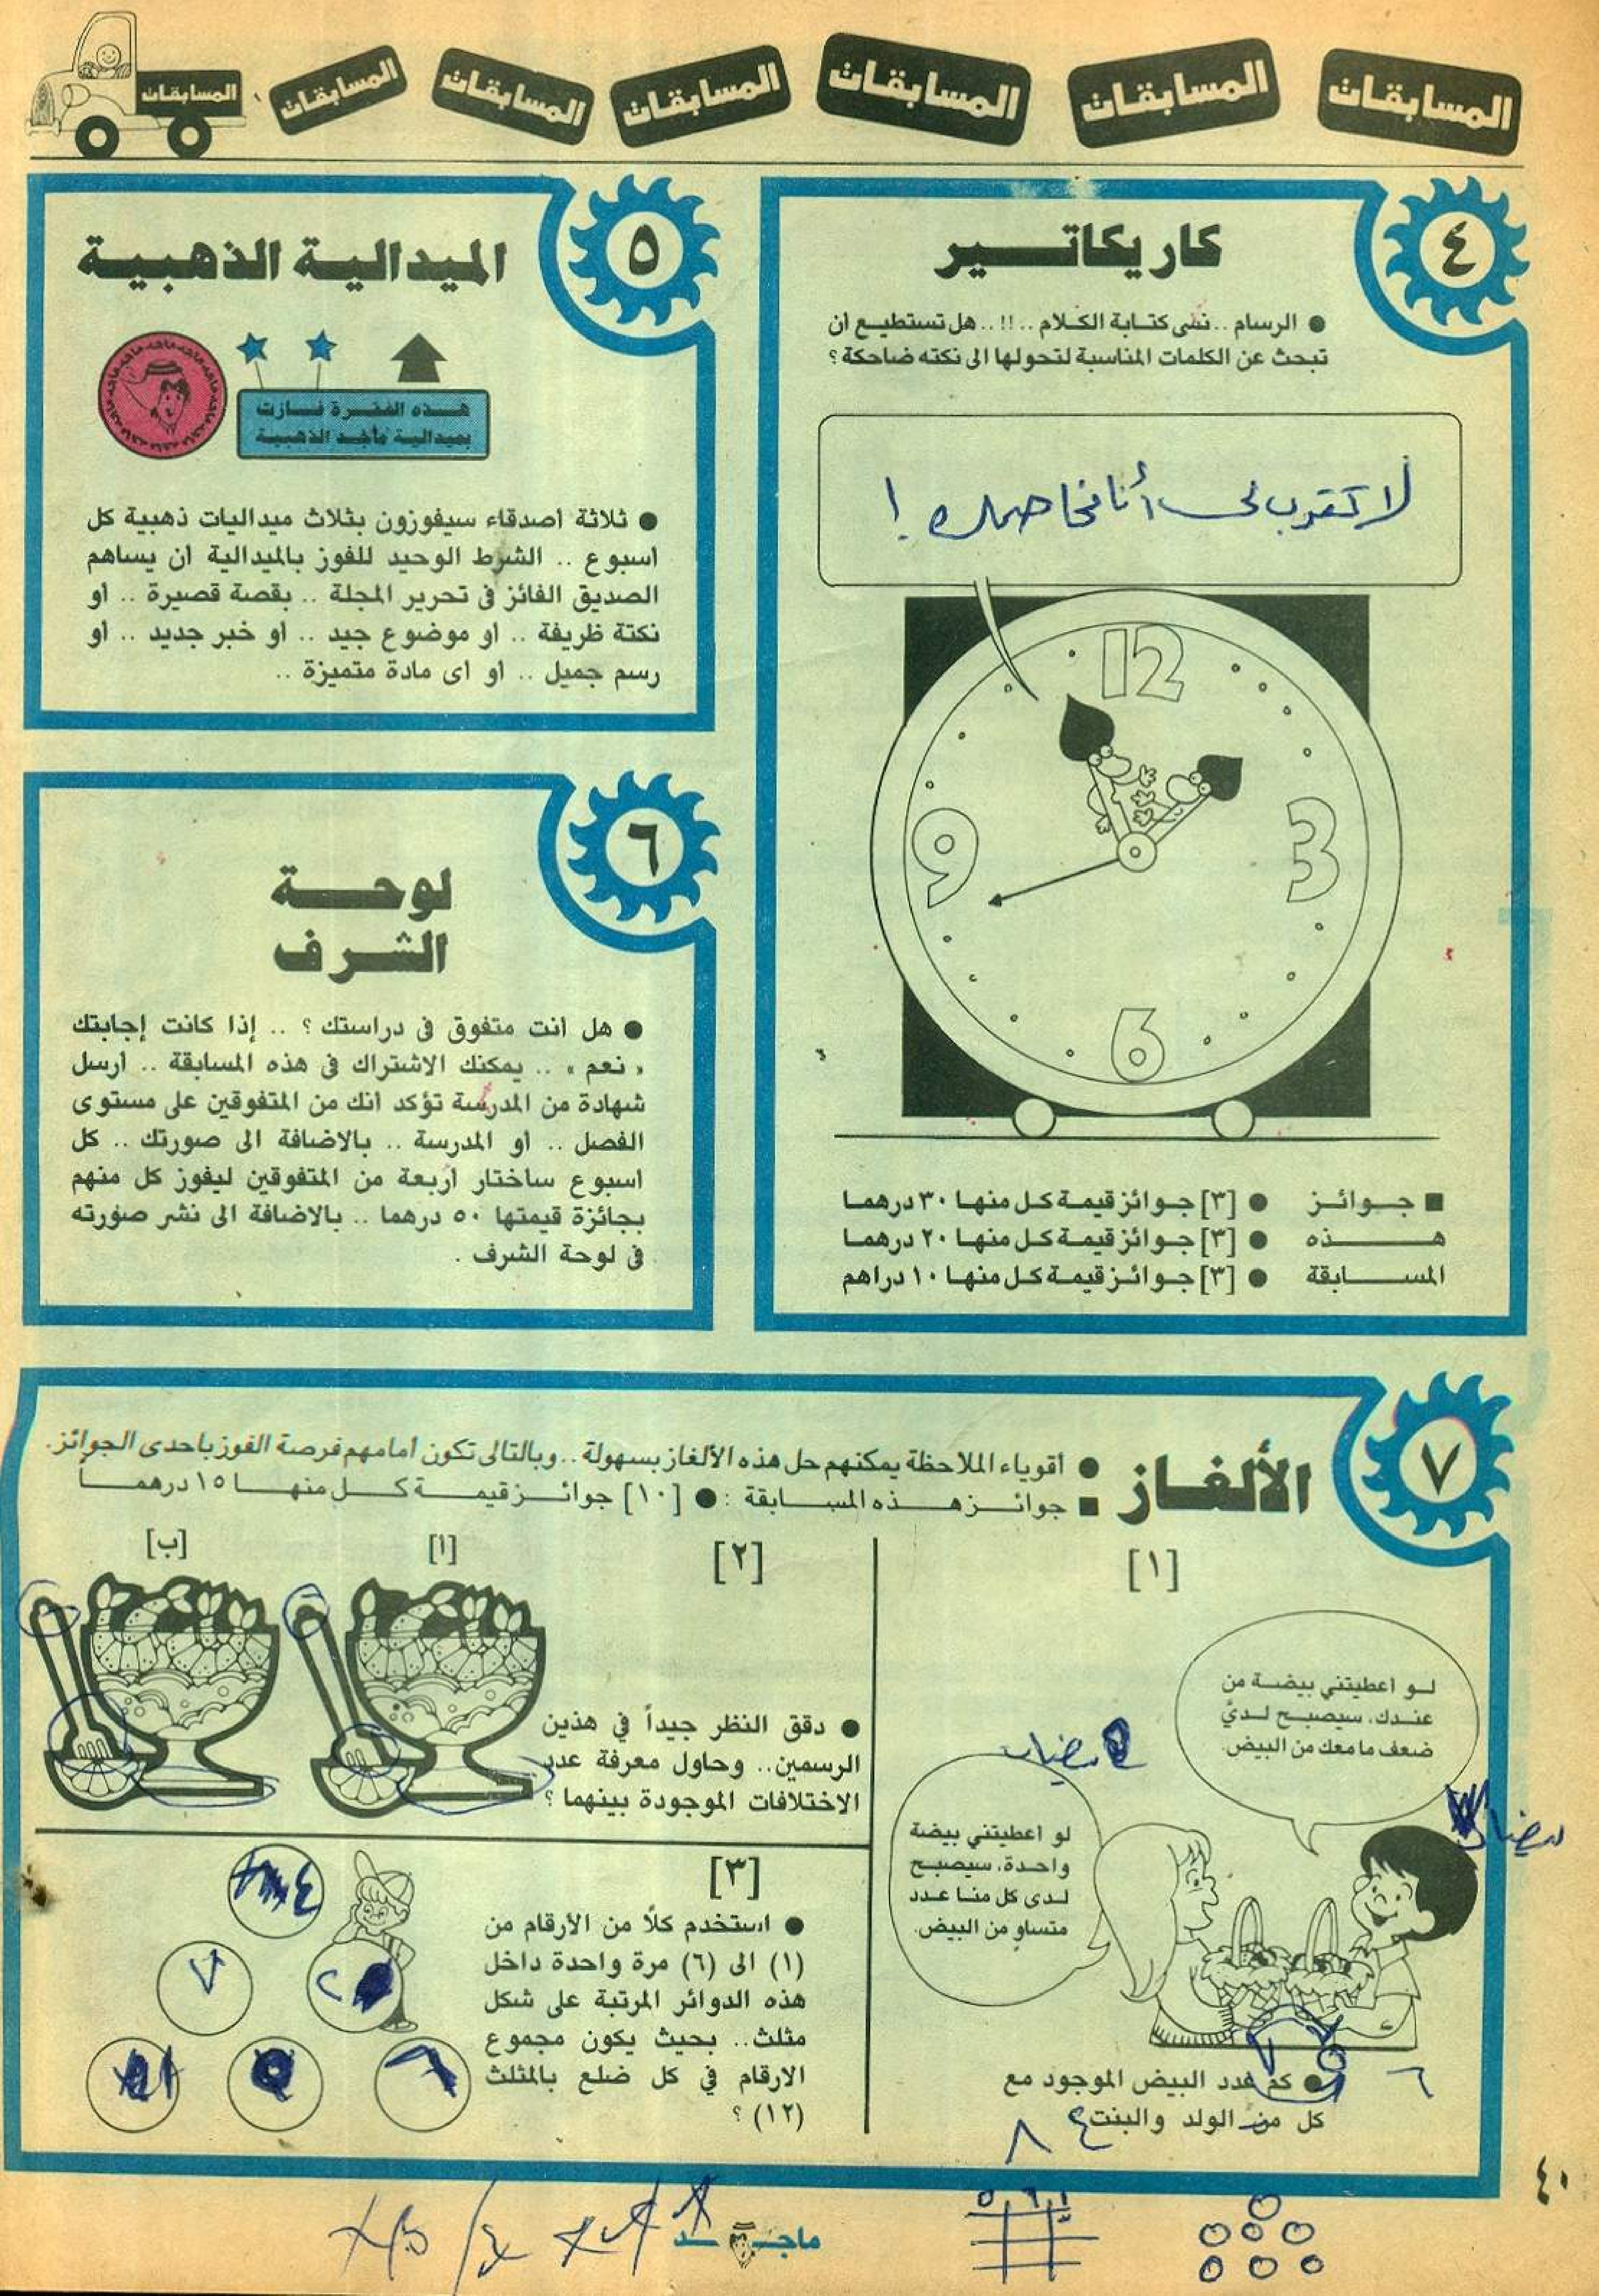 المسابقات
المسابقات
المسابقات
المسابقات
المسابقات
المسابقات
المسابقات
٤
كاريكاتـــير
● الرسام .. نسى كتـابة الكـلام .. !! .. هل تستطيـع ان
تبحث عن الكلمات المناسبة لتحولها الى نكته ضاحكة ؟
لا تقترب لى أنا مخاصمك !
12
3
6
9
■ جـوائـز ● [٣] جـوائز قيمـة كـل منهـا ٣٠ درهمـا
هـــــذه ● [٣] جـوائز قيمـة كـل منهـا ٢٠ درهمـا
المســـابقة ● [٣] جـوائـز قيمـة كـل منهـا ١٠ دراهم
٥
الميدالية الذهبية
هـذه الفقـرة فـازت
بميداليـة ماجـد الذهبيـة
● ثلاثة اصدقاء سيفوزون بثلاث ميداليات ذهبية كل
اسبوع .. الشرط الوحيد للفوز بالميدالية ان يساهم
الصديق الفائز فى تحرير المجلة .. بقصة قصيرة .. او
نكتة ظريفة .. او موضوع جيد .. او خبر جديد .. او
رسم جميل .. او اى مادة متميزة ..
٦
لوحـــة
الشـرف
● هل انت متفوق فى دراستك ؟ .. إذا كانت إجابتك
« نعم » .. يمكنك الاشتراك فى هذه المسابقة .. ارسل
شهادة من المدرسة تؤكد انك من المتفوقين على مستوى
الفصل .. او المدرسة .. بالاضافة الى صورتك .. كل
اسبوع ساختار اربعة من المتفوقين ليفوز كل منهم
بجائزة قيمتها ٥٠ درهما .. بالاضافة الى نشر صورته
فى لوحة الشرف .
٧
الألغـاز :
● أقوياء الملاحظة يمكنهم حل هذه الألغاز بسهولة .. وبالتالى تكون امامهم فرصة الفوز باحدى الجوائز .
■ جوائـز هـذه المسـابقة : ● [١٠] جوائـز قيمـة كـل منهـا ١٥ درهمـاً
[١]
لـو اعطيتني بيضـة من
عنـدك، سيصبـح لـديّ
ضعف ما معك من البيض.
بيضات
لو اعطيتني بيضة
واحدة، سيصبـح
لـدى كل منـا عـدد
متساوٍ من البيض.
● كم عدد البيض الموجود مع
كل من الولد والبنت؟
٦
٨
[٢]
[ا]
[ب]
● دقق النظر جيداً في هذين
الرسمين.. وحاول معرفة عدد
الاختلافات الموجودة بينهما ؟
[٣]
● استخدم كلاً من الأرقام من
(١) الى (٦) مرة واحدة داخل
هذه الدوائر المرتبة على شكل
مثلث.. بحيث يكون مجموع
الارقام في كل ضلع بالمثلث
(١٢) ؟
٤
٧
٢
٦
٤٠
ماجـد